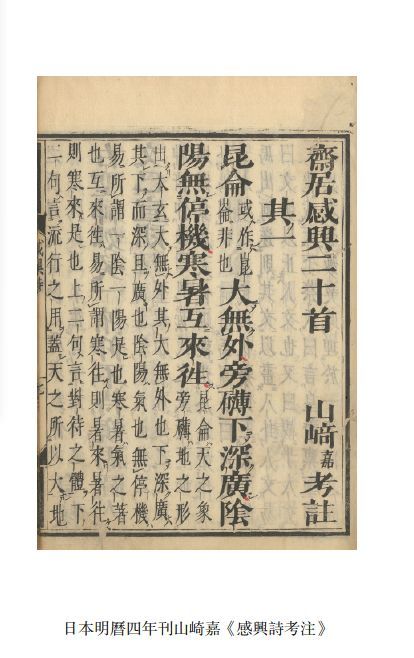 齋居感興二十首 山﨑嘉考註
其一
昆侖或作昆崙非也大無外旁礡下深廣陰
陽無停機寒暑互來徃昆侖天之象旁礡地之形
出太玄大無外其大無外也下深廣
其下而深且廣也陰陽氣也無停機
易所謂一陰一陽是也寒暑氣之著
也互來徃易所謂寒徃則暑來暑徃
則寒來是也上二句言對待之體下
二句言流行之用蓋天之所以大地
日本明曆四年刊山崎嘉《感興詩考注》